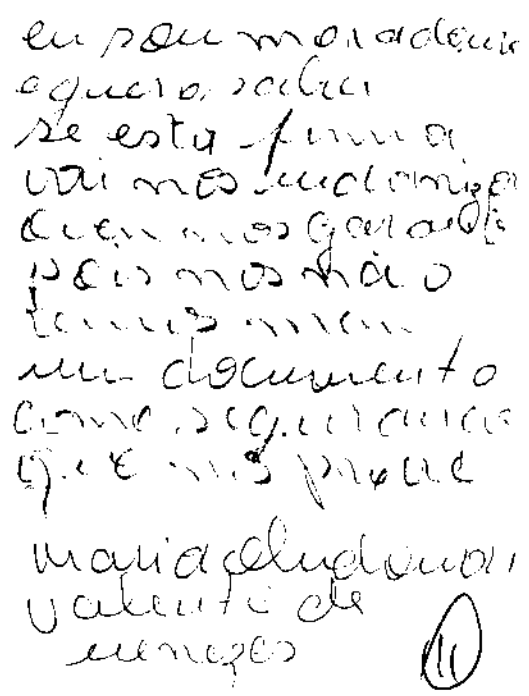 eu sou moradeira
e quero saber
se esta firma
vai nos indeniza
quem nos garante
pois nos não
temos nem
um documento
como segurança
que nos prove
maria
valente de
menezes